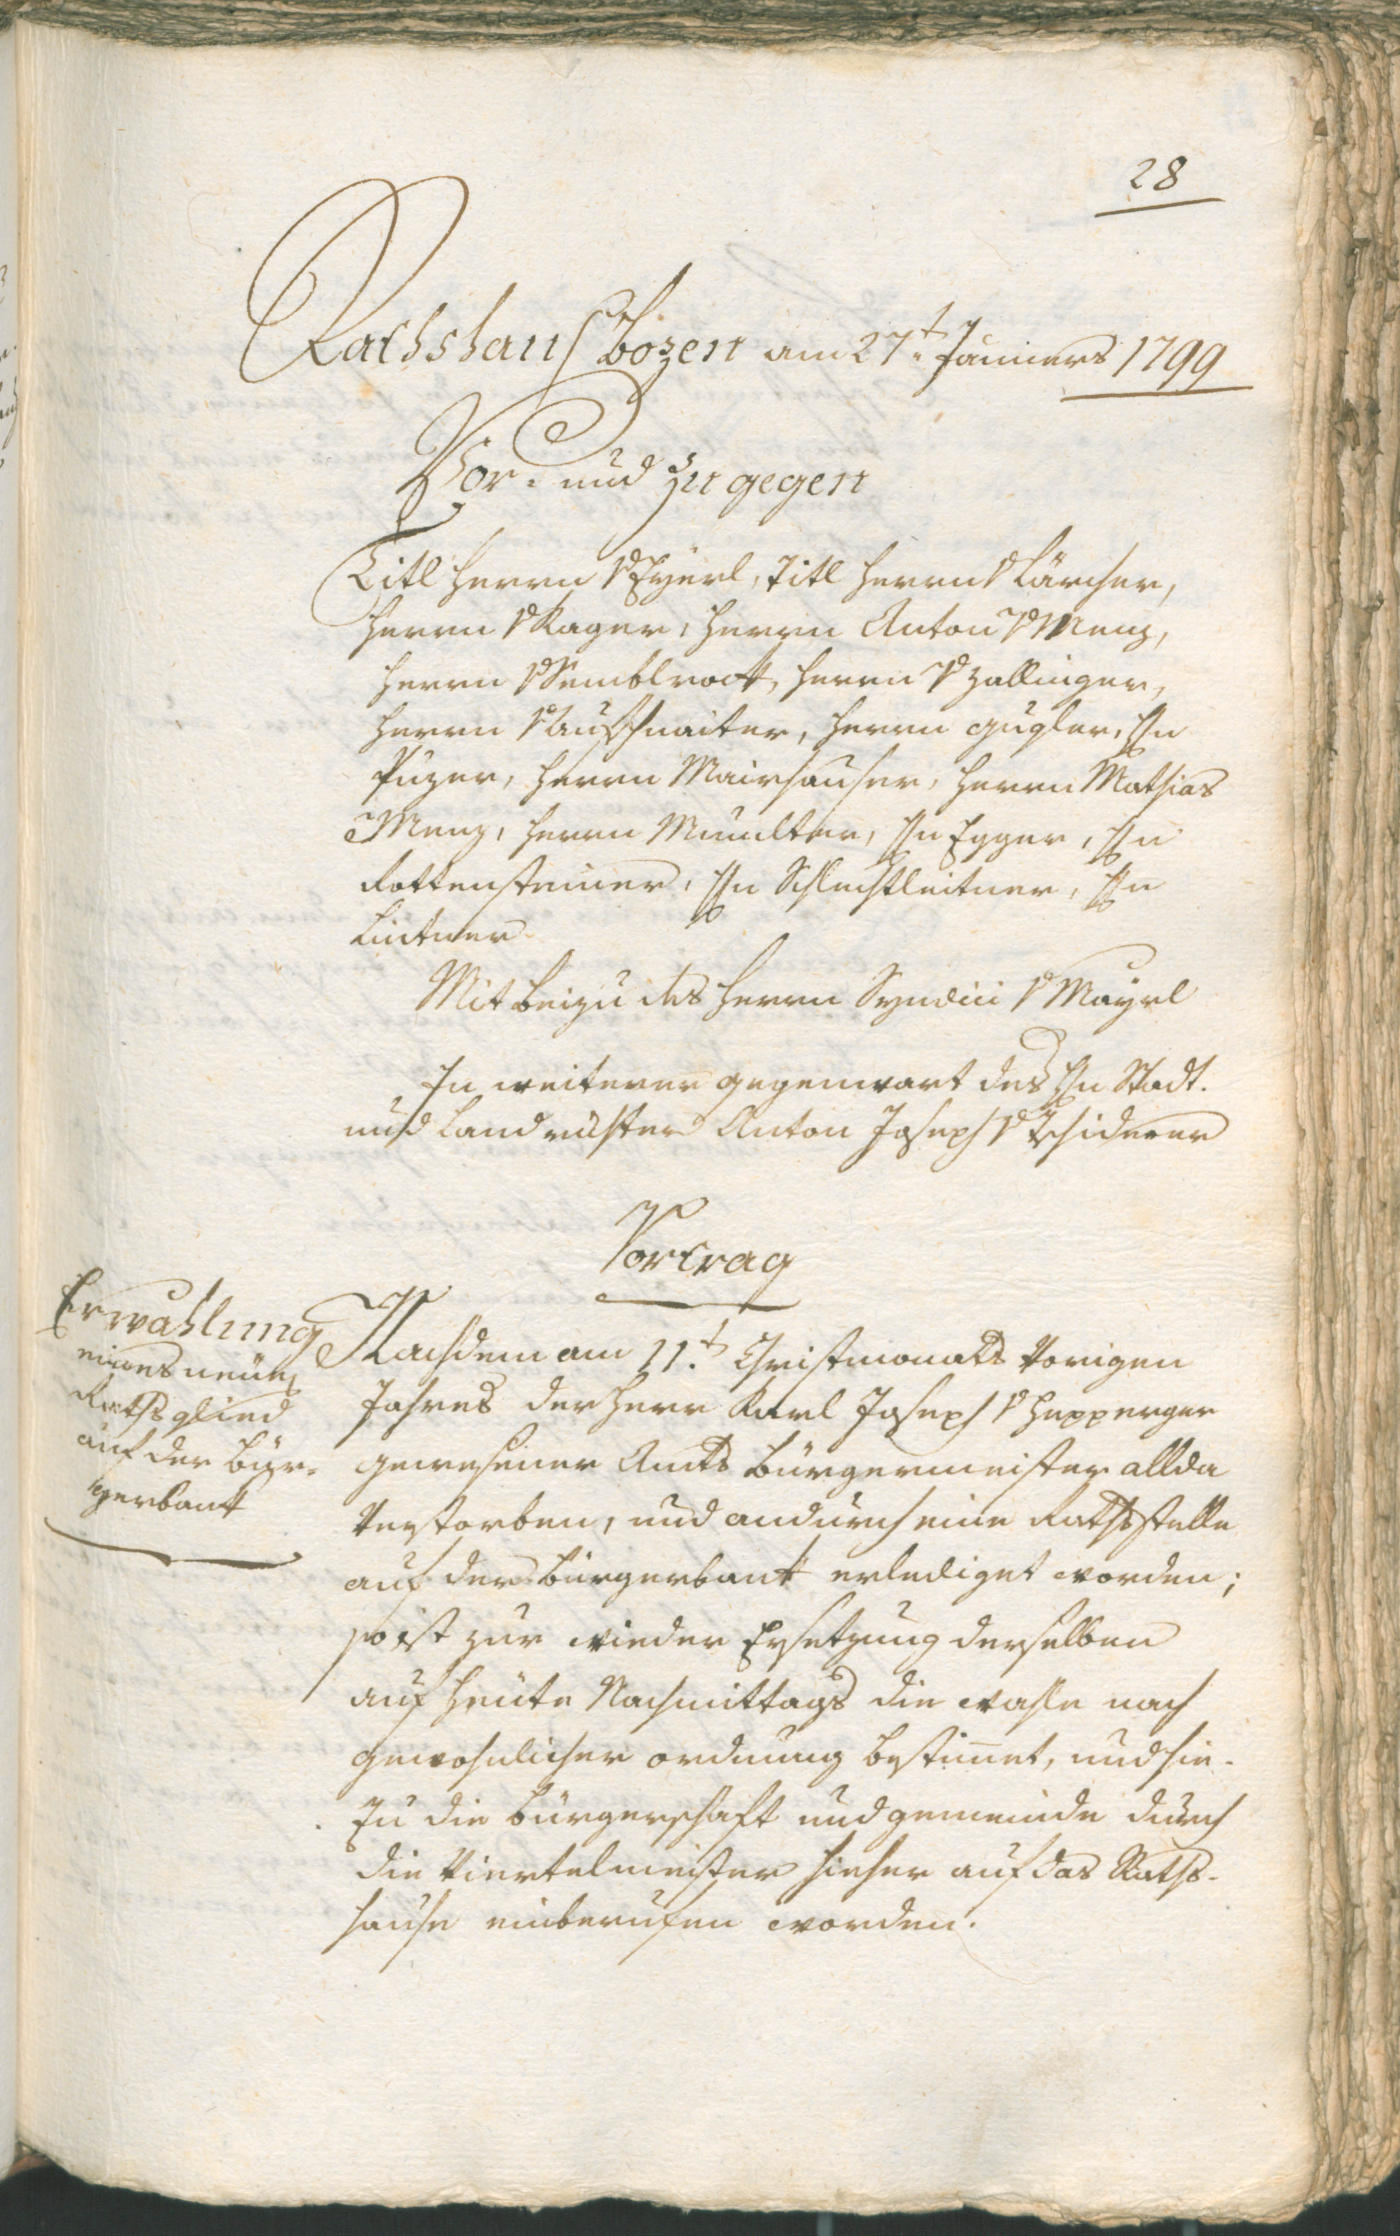 28
Rathshaus Bozen am 27.t Jänners 1799
Vor- und zu gegen
Titl Herrn v Eyerl, Titl Herrn v Lärcher,
Herrn v Kager, Herrn Anton v Menz,
Herrn v Semblrock, Herrn v Zallinger,
Herrn v Aufschnaiter, Herrn Gugler, Hn
Puzer, Herrn Mairhauser, Herrn Mathias
Menz, Herrn Mumelter, Hn Egger, Hn
Rottensteiner, Hn Schlechtleitner, Hn
Lintner
Mit beizu des Herrn Syndici v Mayrl
In weiterer gegenwart des Hn Stadt-
und Landrichter Anton Joseph v Tschiderer
Vortrag
Erwählung
eines neüen
Rathsglied
auf der Bür-
gerbank
Nachdem am 11.t Christmonats vorigen
Jahres der Herr Karl Joseph v Hepperger
gewesener Amts Bürgermeister allda
verstorben, und andurch eine Rathsstelle
auf der Bürgerbank erlediget worden;
so ist zur wieder Ersetzung derselben
auf heüte Nachmittags die wahle nach
gewohnlicher ordnung bestimmet, und hie-
zu die Bürgerschaft und gemeinde durch
die Viertelmeister hieher auf das Raths-
hause einberufen worden.